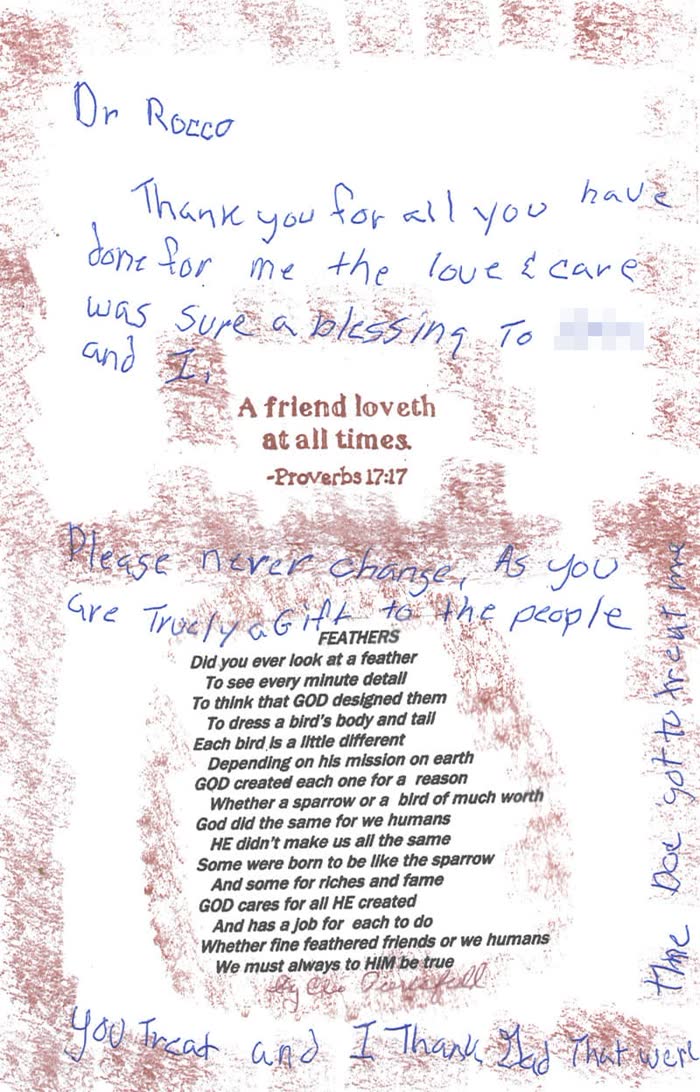 Dr Rocco
Thank you for all you have
done for me the love & care
was sure a blessing To
and I,
A friend loveth
at all times.
-Proverbs 17:17
Please never change, As you
are Truely a Gift to the people
FEATHERS
Did you ever look at a feather
To see every minute detail
To think that GOD designed them
To dress a bird's body and tail
Each bird is a little different
Depending on his mission on earth
GOD created each one for a reason
Whether a sparrow or a bird of much worth
God did the same for we humans
HE didn't make us all the same
Some were born to be like the sparrow
And some for riches and fame
GOD cares for all HE created
And has a job for each to do
Whether fine feathered friends or we humans
We must always to HIM be true
by
You Treat and I Thank God That were
thne Doc got to treat me